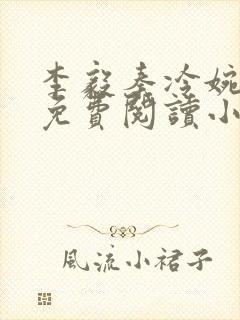 李毅秦冷婉
免費閱讀小
風流小裙子